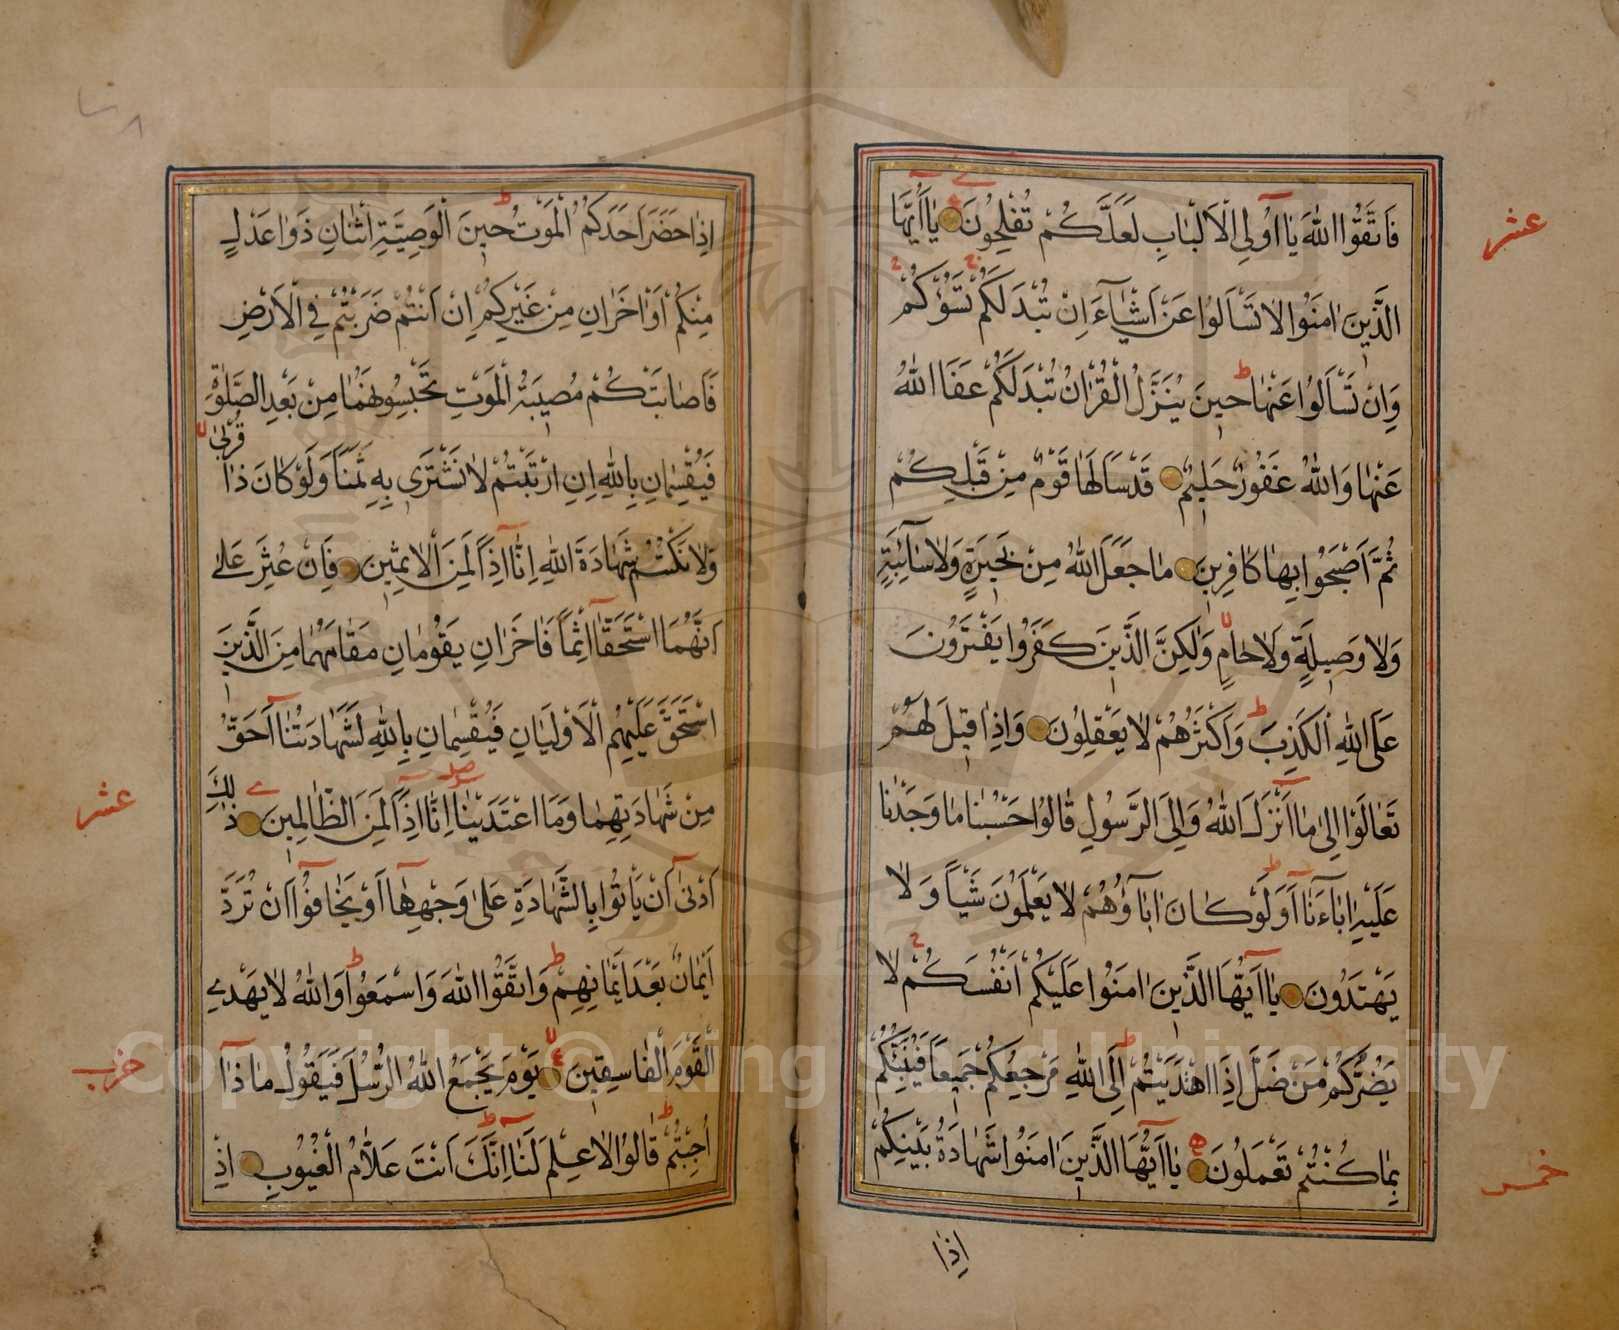 عشر
فَاتَّقُوا اللّٰهَ يَٓا اُولِى الْاَلْبَابِ لَعَلَّكُمْ تُفْلِحُونَ يَٓا اَيُّهَا
الَّذِينَ اٰمَنُوا لَا تَسْـَٔلُوا عَنْ اَشْيَٓاءَ اِنْ تُبْدَ لَكُمْ تَسُؤْكُمْ
وَاِنْ تَسْـَٔلُوا عَنْهَا حِينَ يُنَزَّلُ الْقُرْاٰنُ تُبْدَ لَكُمْ عَفَا اللّٰهُ
عَنْهَا وَاللّٰهُ غَفُورٌ حَلِيمٌ قَدْ سَاَلَهَا قَوْمٌ مِنْ قَبْلِكُمْ
ثُمَّ اَصْبَحُوا بِهَا كَافِرِينَ مَا جَعَلَ اللّٰهُ مِنْ بَحِيرَةٍ وَلَا سَٓائِبَةٍ
وَلَا وَصِيلَةٍ وَلَا حَامٍ وَلٰكِنَّ الَّذِينَ كَفَرُوا يَفْتَرُونَ
عَلَى اللّٰهِ الْكَذِبَ وَاَكْثَرُهُمْ لَا يَعْقِلُونَ وَاِذَا قِيلَ لَهُمْ
تَعَالَوْا اِلٰى مَٓا اَنْزَلَ اللّٰهُ وَاِلَى الرَّسُولِ قَالُوا حَسْبُنَا مَا وَجَدْنَا
عَلَيْهِ اٰبَٓاءَنَا اَوَلَوْ كَانَ اٰبَٓاؤُهُمْ لَا يَعْلَمُونَ شَيْـًٔا وَلَا
يَهْتَدُونَ يَٓا اَيُّهَا الَّذِينَ اٰمَنُوا عَلَيْكُمْ اَنْفُسَكُمْ لَا
يَضُرُّكُمْ مَنْ ضَلَّ اِذَا اهْتَدَيْتُمْ اِلَى اللّٰهِ مَرْجِعُكُمْ جَمِيعًا فَيُنَبِّئُكُمْ
بِمَا كُنْتُمْ تَعْمَلُونَ يَٓا اَيُّهَا الَّذِينَ اٰمَنُوا شَهَادَةُ بَيْنِكُمْ
خمس
اِذَا
اِذَا حَضَرَ اَحَدَكُمُ الْمَوْتُ حِينَ الْوَصِيَّةِ اثْنَانِ ذَوَا عَدْلٍ
مِنْكُمْ اَوْ اٰخَرَانِ مِنْ غَيْرِكُمْ اِنْ اَنْتُمْ ضَرَبْتُمْ فِى الْاَرْضِ
فَاَصَابَتْكُمْ مُصِيبَةُ الْمَوْتِ تَحْبِسُونَهُمَا مِنْ بَعْدِ الصَّلٰوةِ
فَيُقْسِمَانِ بِاللّٰهِ اِنِ ارْتَبْتُمْ لَا نَشْتَرِى بِهِ ثَمَنًا وَلَوْ كَانَ ذَا قُرْبٰى
وَلَا نَكْتُمُ شَهَادَةَ اللّٰهِ اِنَّٓا اِذًا لَمِنَ الْاٰثِمِينَ فَاِنْ عُثِرَ عَلٰٓى
اَنَّهُمَا اسْتَحَقَّٓا اِثْمًا فَاٰخَرَانِ يَقُومَانِ مَقَامَهُمَا مِنَ الَّذِينَ
اسْتَحَقَّ عَلَيْهِمُ الْاَوْلَيَانِ فَيُقْسِمَانِ بِاللّٰهِ لَشَهَادَتُنَٓا اَحَقُّ
مِنْ شَهَادَتِهِمَا وَمَا اعْتَدَيْنَٓا اِنَّٓا اِذًا لَمِنَ الظَّالِمِينَ ذٰلِكَ
عشر
اَدْنٰٓى اَنْ يَأْتُوا بِالشَّهَادَةِ عَلٰى وَجْهِهَٓا اَوْ يَخَافُٓوا اَنْ تُرَدَّ
اَيْمَانٌ بَعْدَ اَيْمَانِهِمْ وَاتَّقُوا اللّٰهَ وَاسْمَعُوا وَاللّٰهُ لَا يَهْدِى
الْقَوْمَ الْفَاسِقِينَ يَوْمَ يَجْمَعُ اللّٰهُ الرُّسُلَ فَيَقُولُ مَاذَٓا
حزب
اُجِبْتُمْ قَالُوا لَا عِلْمَ لَنَا اِنَّكَ اَنْتَ عَلَّامُ الْغُيُوبِ اِذْ
Copyright © King Saud University